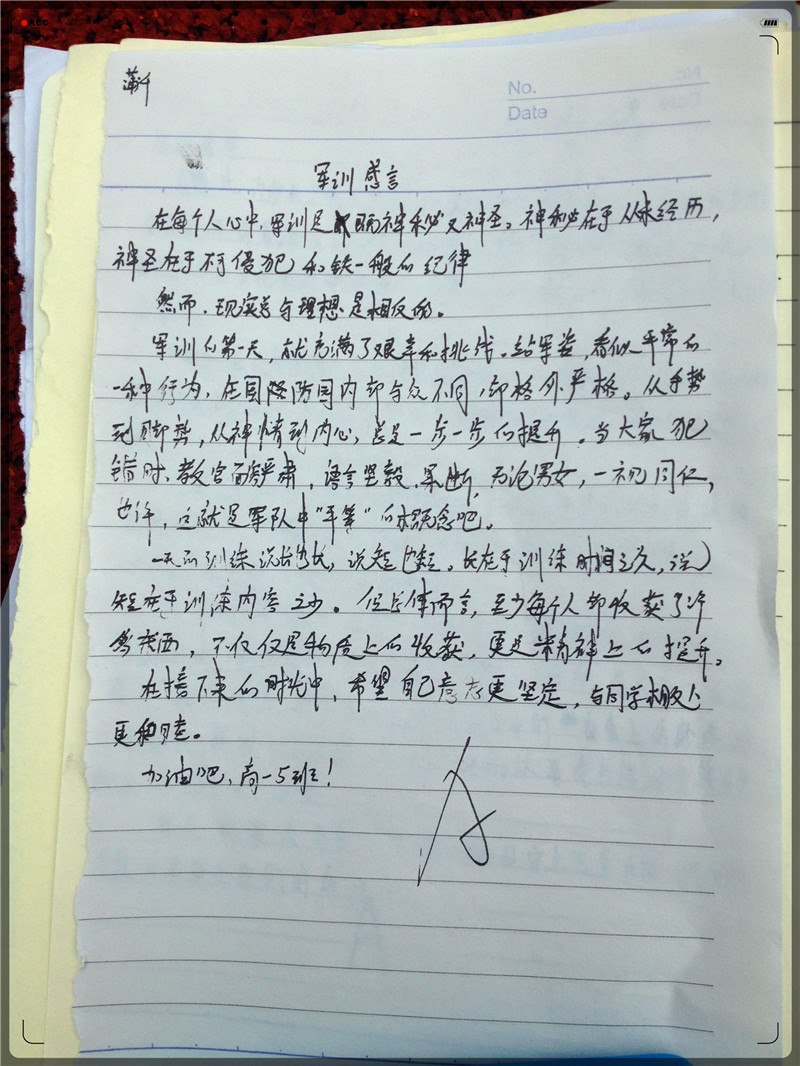 REC
No.
Date
军训感言
在每个人心中,军训是既神秘又神圣。神秘在于从未经历,
神圣在于不可侵犯和铁一般的纪律
然而,现实总与理想是相反的。
军训的第一天,就充满了艰辛和挑战。站军姿,看似平常的
一种行为,在国防园内却与众不同,却格外严格。从手势
到脚势,从神情到内心,总是一步一步的提升。当大家犯
错时,教官面带严肃,语言坚毅、果断,无论男女,一视同仁,
也许,这就是军队中"平等"的概念吧。
一天的训练说长也长,说短也短。长在于训练时间之久,说
短在于训练内容之少。但总体而言,至少每个人都收获了许
多东西,不仅仅是物质上的收获,更是精神上的提升。
在接下来的时光中,希望自己意志更坚定,与同学相处
更和睦。
加油吧,高一5班!